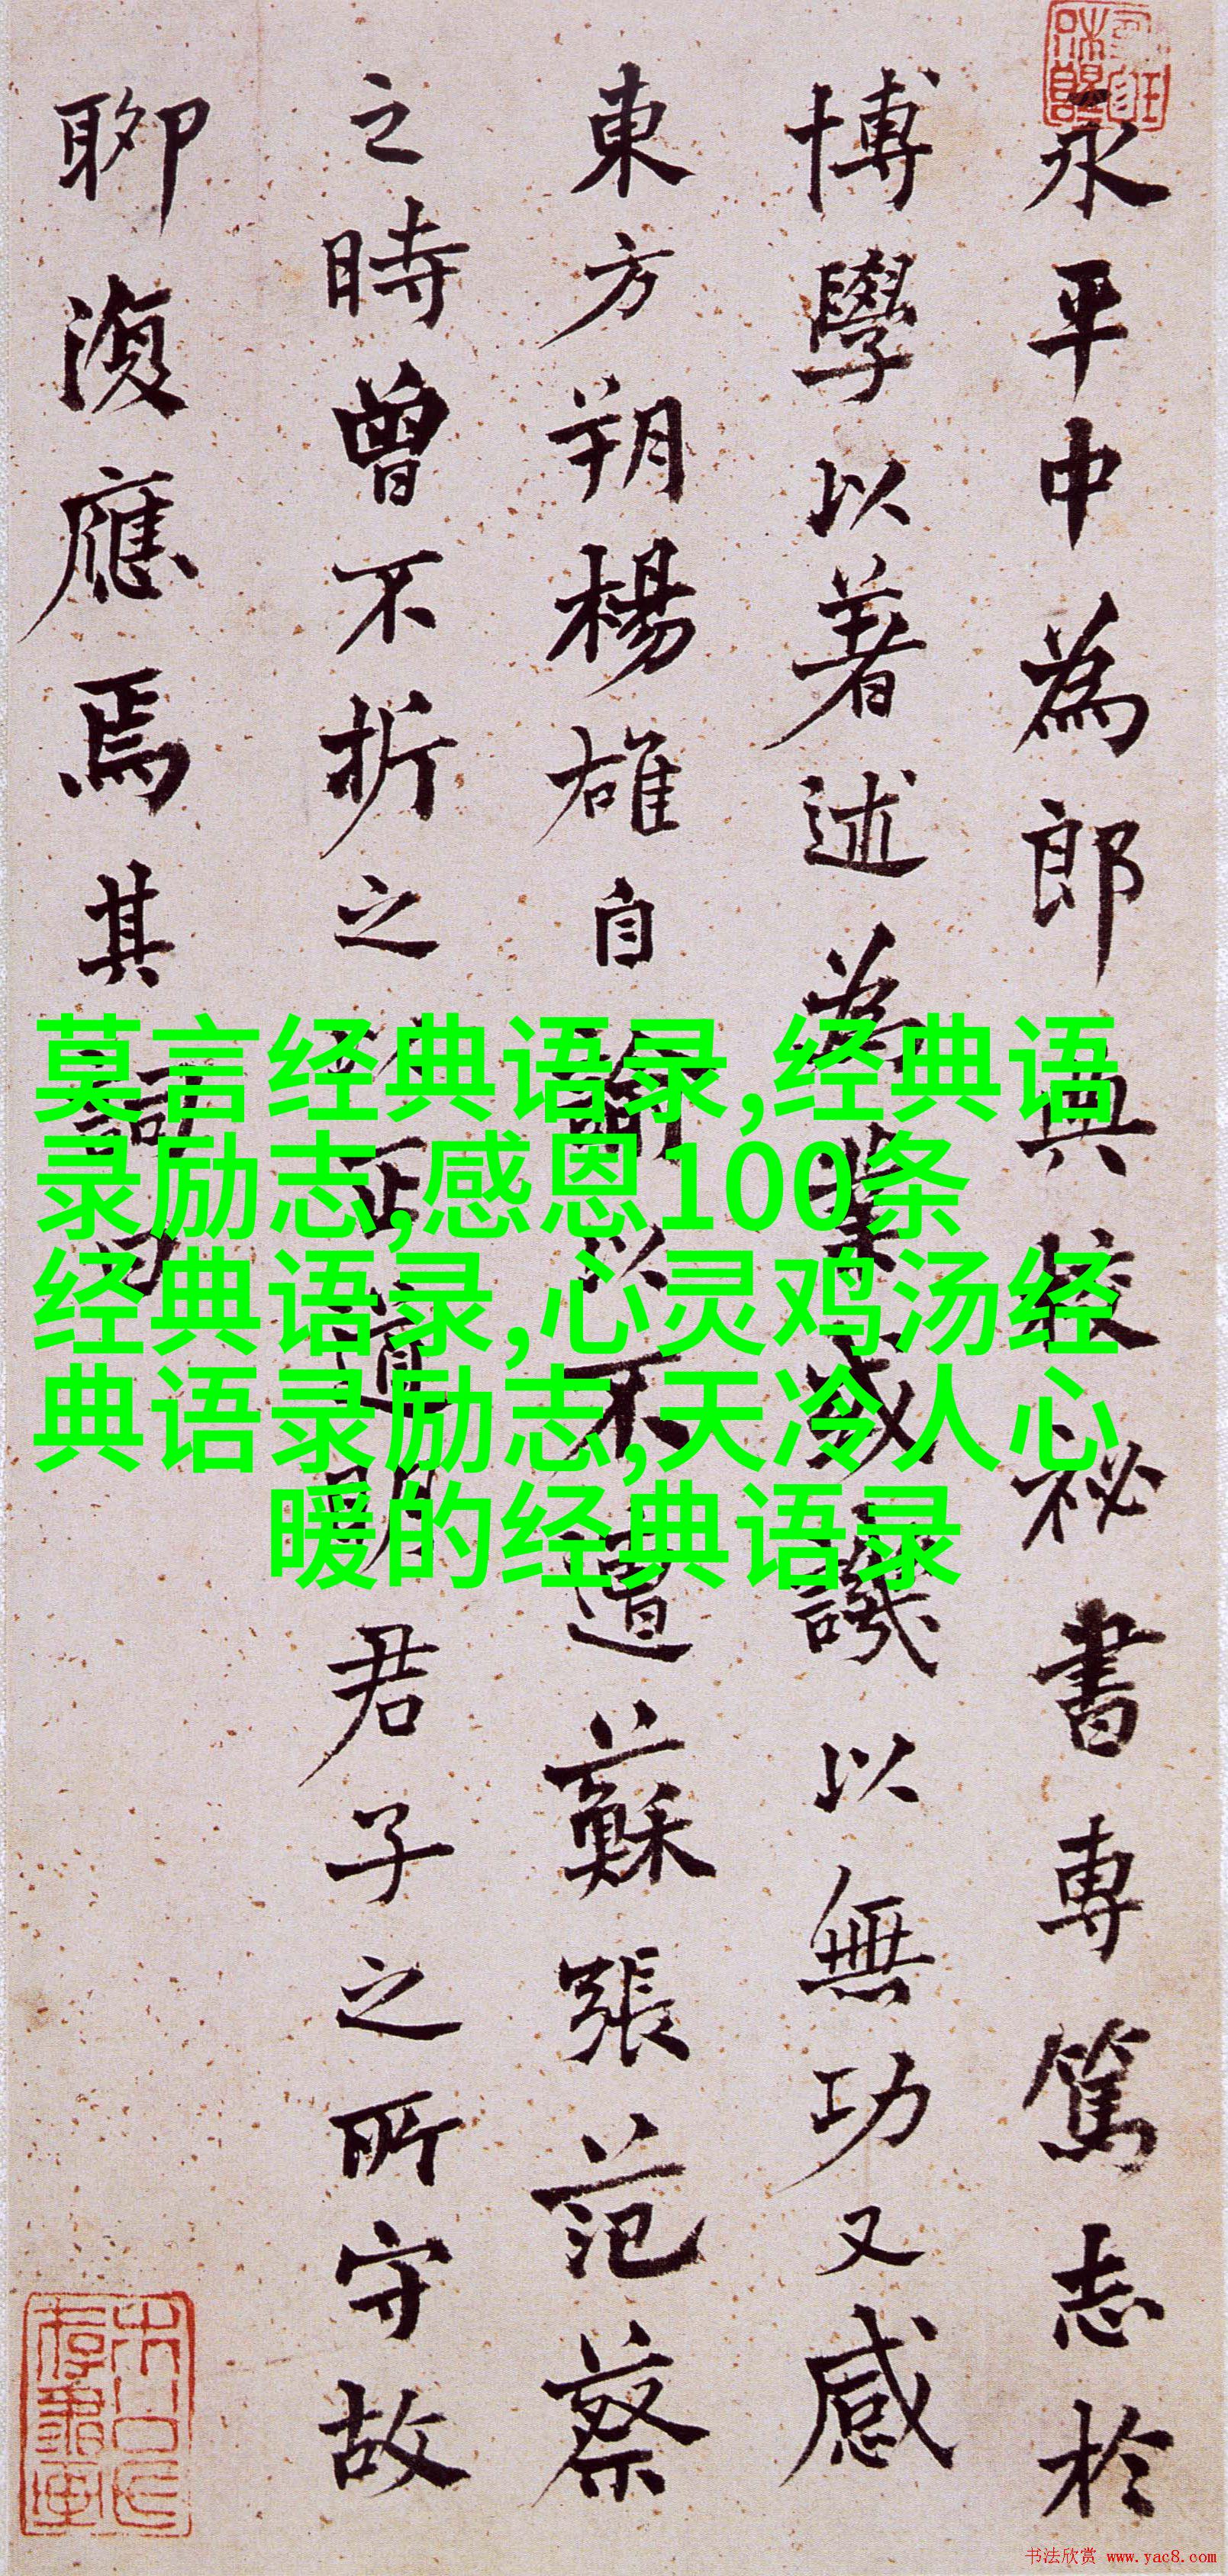 永平中為郎典校祕書專篤志於
博學以著述為業或譏以無功又感
東方朔楊雄自諭以不遭蘇張范蔡
之時曾不折之以正道明君子之所守故
聊復應焉其詞曰
莫言经典语录,经典语
录励志,感恩100条
经典语录,心灵鸡汤经
典语录励志,天冷人心
暖的经典语录
书法欣赏 www.yac8.com